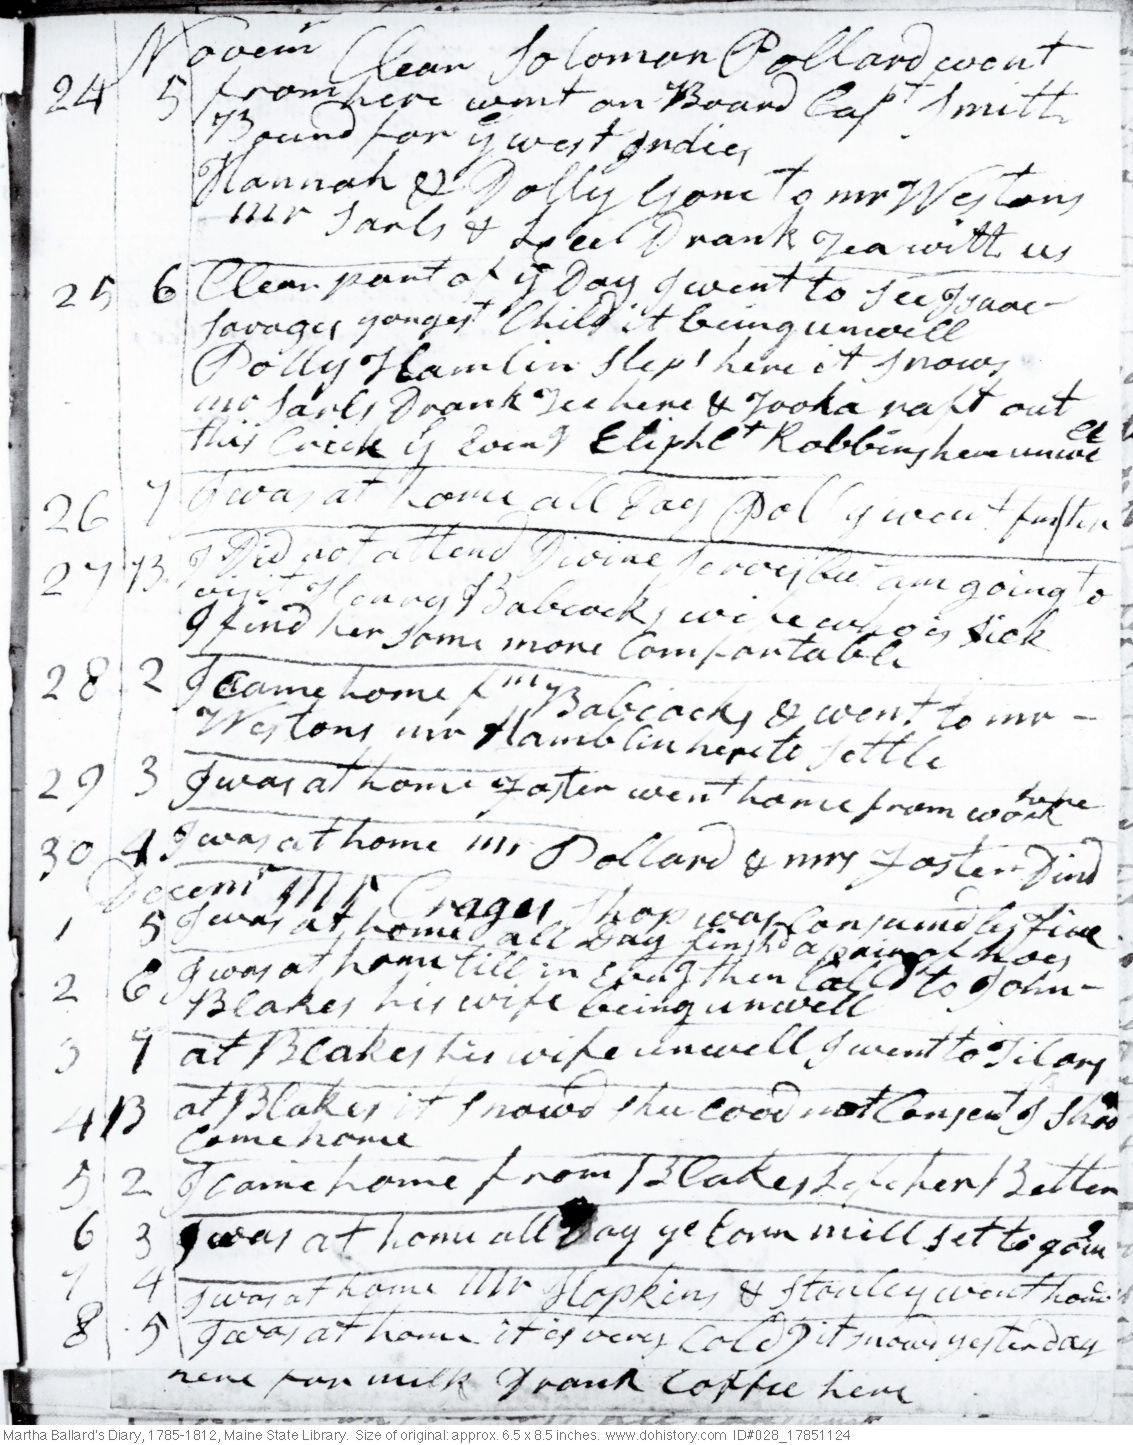 Novemr Clear Solomon Pollard went
24 5 from here went on Board Capt Smith
Bound for ye west Indies
Hannah & Dolly gone to mr Westons
mr Sarls & Drank Tea with us
25 6 Clear part of ye Day I went to See Isaac
Savages yongest Child it being unwell
Polly Hamlin Slept here it Snows
mr Sarls Drank Tee here & Took a raft out
this Crick ye Evening Eliphlt Robbins here unwell
26 7 I was at home all Day Polly went
27 B I Did not attend Divine Servis but am going to
visit Henry Babcocks wife who is Sick
I find her Some more Comfortable
28 2 I came home fm Babcocks & went to mr
Westons mr Hamblin here to Settle
29 3 I was at home Foster went home from work here
30 4 I was at home mr Pollard & mrs Foster Dind
Decemr Mr Crages Shop was Consumd by Fire
1 5 I was at home all Day finsht a pair of hoes
2 6 I was at home till in Evng then Calld to John
Blakes his wife being unwell
3 7 at Blakes his wife unwell I went to Tilors
4 B at Blakes it Snowd shee cood not Consent I Shoo
come home
5 2 I came home from Blakes Left her Better
6 3 I was at home all Day ye Corn mill Set to goin
7 4 I was at home Mr Hopkins & Stanley went home
8 5 I was at home it is very Cold it snow yesterday
here for milk Drank Coffee here
Martha Ballard's Diary, 1785-1812, Maine State Library. Size of original: approx. 6.5 x 8.5 inches. www.dohistory.com ID#028_17851124